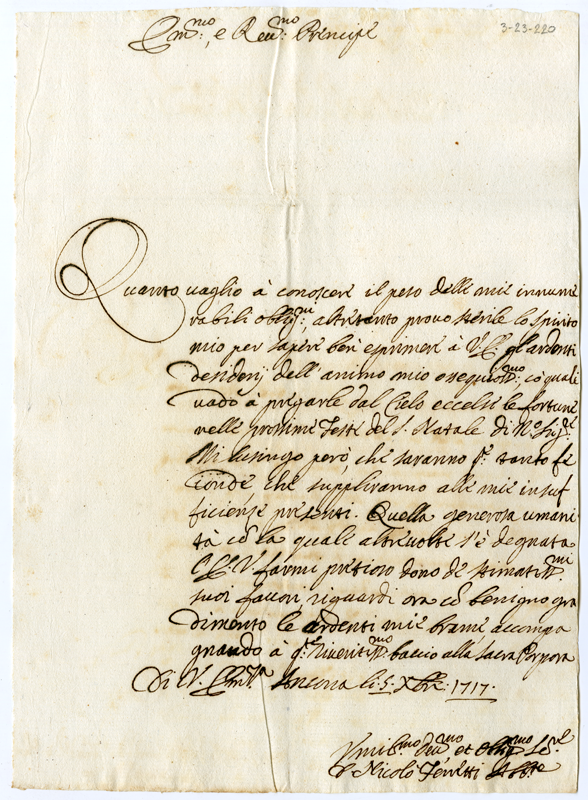 3-23-220
Em.mo, e Reu.mo Principe
Quanto uaglio à conoscere il peso delle mie innume
rabili oblig.ni: altretanto prouo sterile lo spirito
mio per sapere ben esprimere à V.E. gl'ardenti
desiderij dell'animo mio ossequios.mo; cõ quali
uado à pregarle dal Cielo eccelse le fortune
nelle prossime feste del S. Natale di N.o Sig.re
Mi lusingo però, che saranno p. tanto fe
conde che suppliranno alle mie insuf
ficiense presenti. Quella generosa umani
tà cõ la quale altreuolte s'è degnata
V. farmi pretioso dono de stimatiss.mi
suoi fauori, riguardi ora cõ benigno gra
dimento le ardenti mie brame, accompa
gnando à q.te riuerentiss.mo baccio alla Sacra Porpora
Di V. Em.za Ancona li 5. Xbre. 1717.
Vmil.mo deu.mo et Oblig.mo Se.re
Nicolò Ferretti Abbte